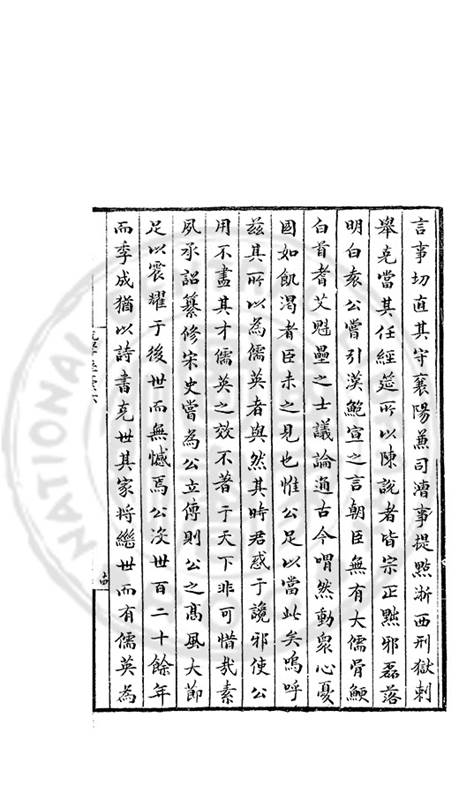 言事切直其守襄陽兼司漕事提㸃浙西刑獄刺
舉克當其任經筵所以陳説者皆宗正黜邪磊落
明白袁公嘗引漢鮑宣之言朝臣無有大儒骨鯁
白首耆艾魁壘之士議論通古今喟然動衆心憂
國如飢渴者臣未之見也惟公足以當此矣嗚呼
兹其所以為儒英者與然其時君惑于讒邪使公
用不盡其才儒英之效不著于天下非可惜哉素
夙承詔纂修宋史嘗為公立傳則公之髙風大節
足以震耀于後世而無憾焉公没世百二十餘年
而季成猶以詩書克世其家將繼世而有儒英為
NATIONAL